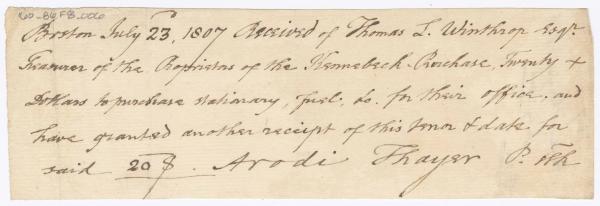 60-86 F8.006
Boston July 23, 1807 Received of Thomas L. Winthrop Esqr
Treasurer of the Proprietors of the Kennebeck-Purchase, Twenty +
Dollars to purchase stationary, fuel, &c. for their office. and
have granted another receipt of this tenor & date for
said 20 $. Arodi Thayer P. Clk